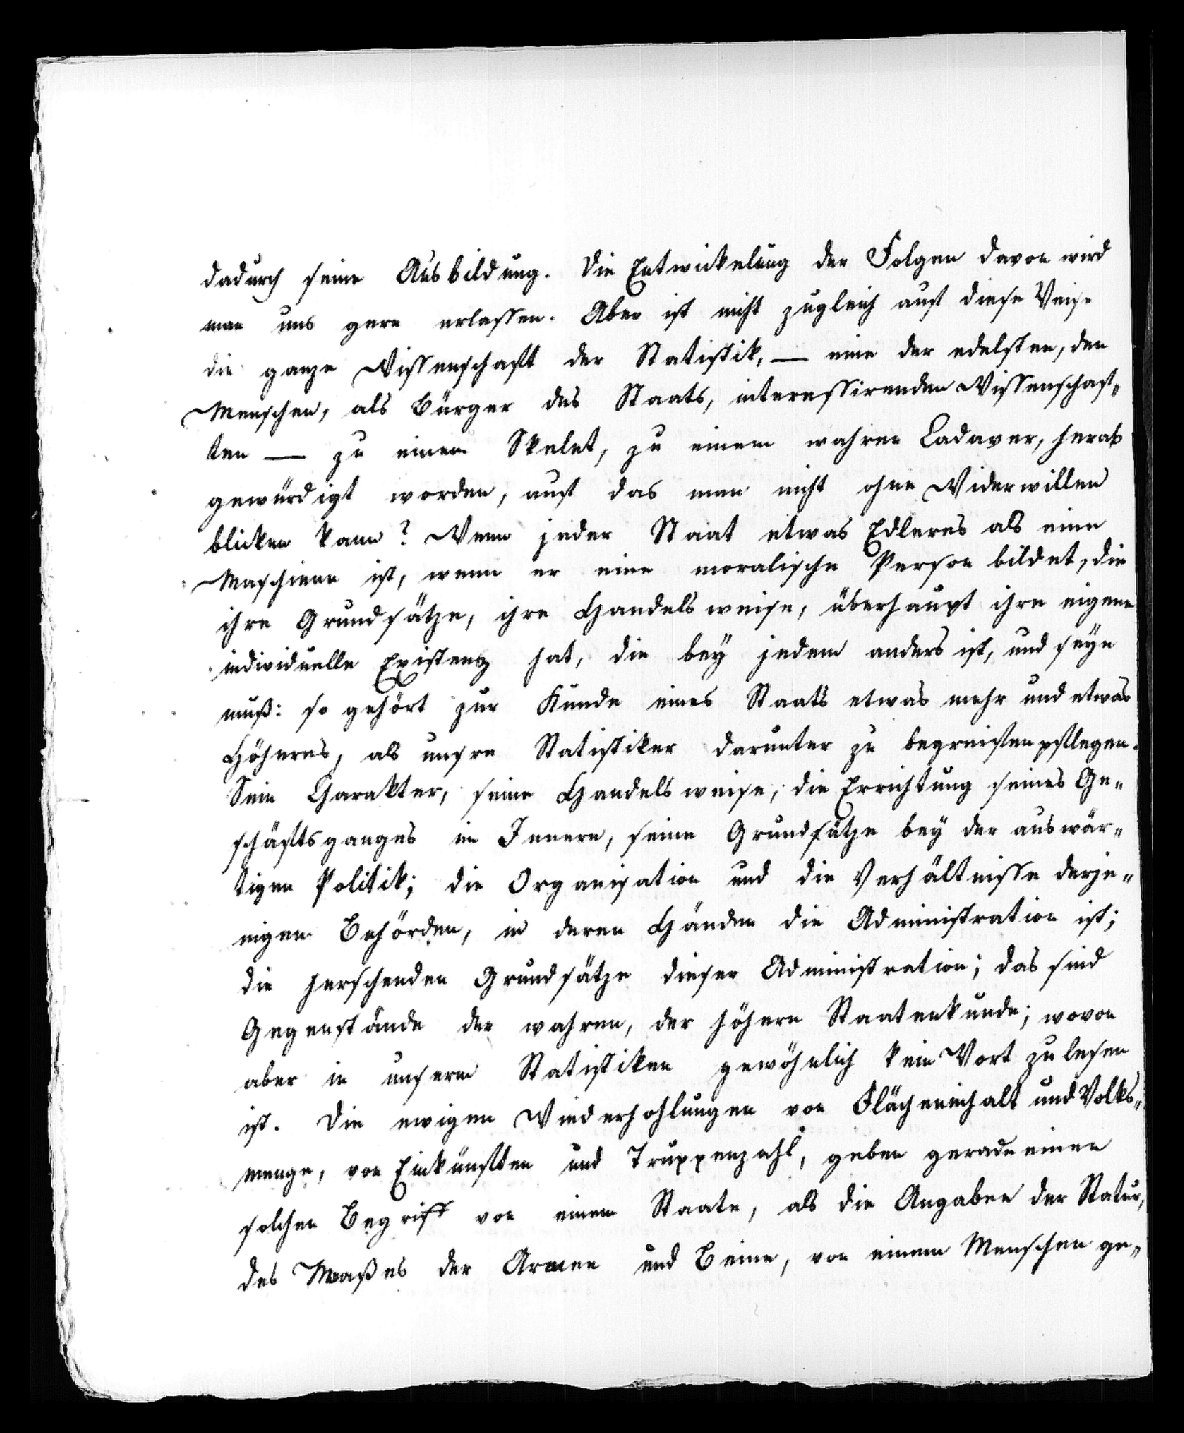 dadurch seine Ausbildung. Die Entwickelung der Folgen davon wird
man uns gern erlassen. Aber ist nicht zugleich auf diese Weise
die ganze Wissenschaft der Statistik, — eine der edelsten, den
Menschen, als Bürger des Staats, interessirenden Wissenschaf-
ten — zu einem Skelet, zu einem wahren Cadaver, herab
gewürdigt worden, auf das man nicht ohne Widerwillen
blicken kann? Wenn jeder Staat etwas Edleres als eine
Maschiene ist, wenn er eine moralische Person bildet, die
ihre Grundsätze, ihre Handelsweise, überhaupt ihre eigene
individuelle Existenz hat, die bey jedem anders ist, und seyn
muß: so gehört zur Kunde eines Staats etwas mehr und etwas
Höheres, als unsre Statistiker darunter zu begreifen pflegen.
Sein Charakter, seine Handelsweise, die Errichtung seines Ge-
schäftsganges im Innern, seine Grundsätze bey der auswär-
tigen Politik; die Organisation und die Verhältnisse derje-
nigen Behörden, in deren Händen die Administration ist;
die herschenden Grundsätze dieser Administration; das sind
Gegenstände der wahren, der höhern Staatenkunde; wovon
aber in unsern Statistiken gewöhnlich kein Wort zu lesen
ist. Die ewigen Wiederhohlungen von Flächeninhalt und Volks-
menge, von Einkünften und Truppenzahl, geben gerade einen
solchen Begriff von einem Staate, als die Angaben der Statur,
des Maaßes der Armen und Beine, von einem Menschen ge-